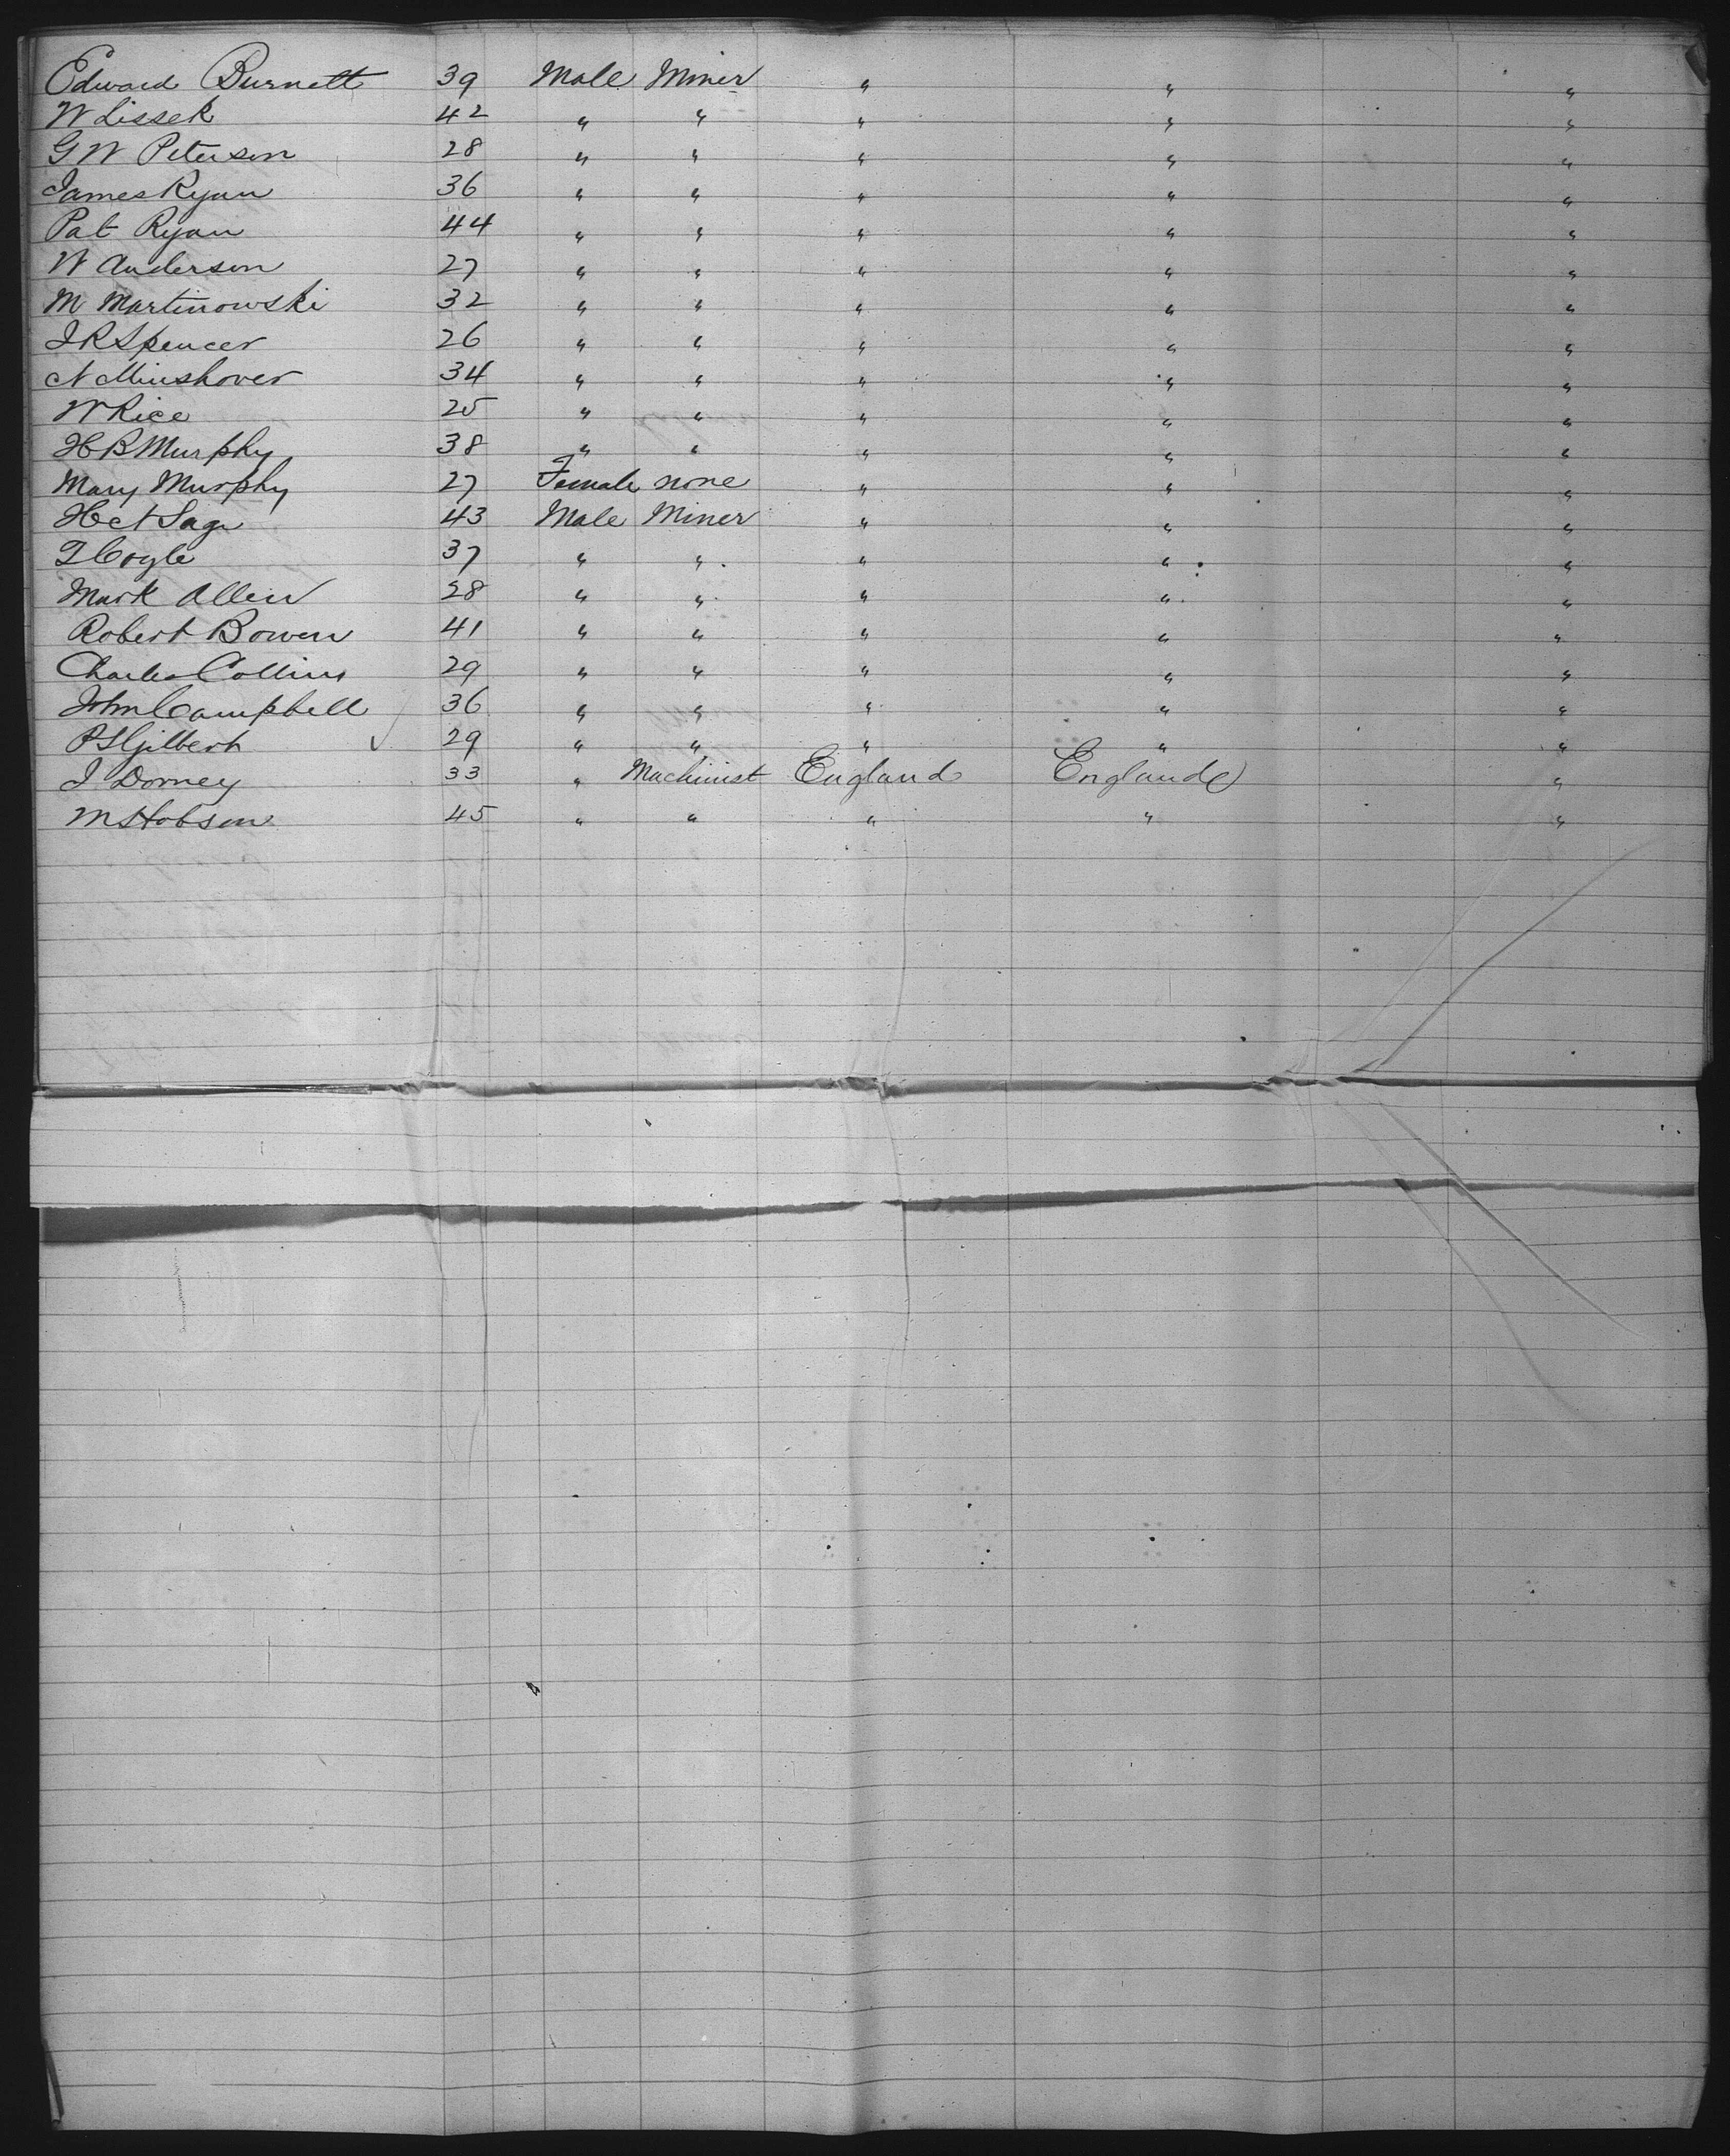 Edward Burnett 39 Male Miner " " "
W Lissek 42 " " " " "
G W Peterson 28 " " " " "
James Ryan 36 " " " " "
Pat Ryan 44 " " " " "
W Anderson 27 " " " " "
M Martinowski 32 " " " " "
J R Spencer 26 " " " " "
N Minshover 34 " " " " "
W Rice 25 " " " " "
H B Murphy 38 " " " " "
Mary Murphy 27 Female none " " "
H N Sage 43 Male Miner " " "
T Coyle 37 " " " " "
Mark Allen 28 " " " " "
Robert Bowen 41 " " " " "
Charles Collins 29 " " " " "
John Campbell 36 " " " " "
P S Gilbert 29 " " " " "
J Dorney 33 " Machinist England England "
M Hobson 45 " " " " "